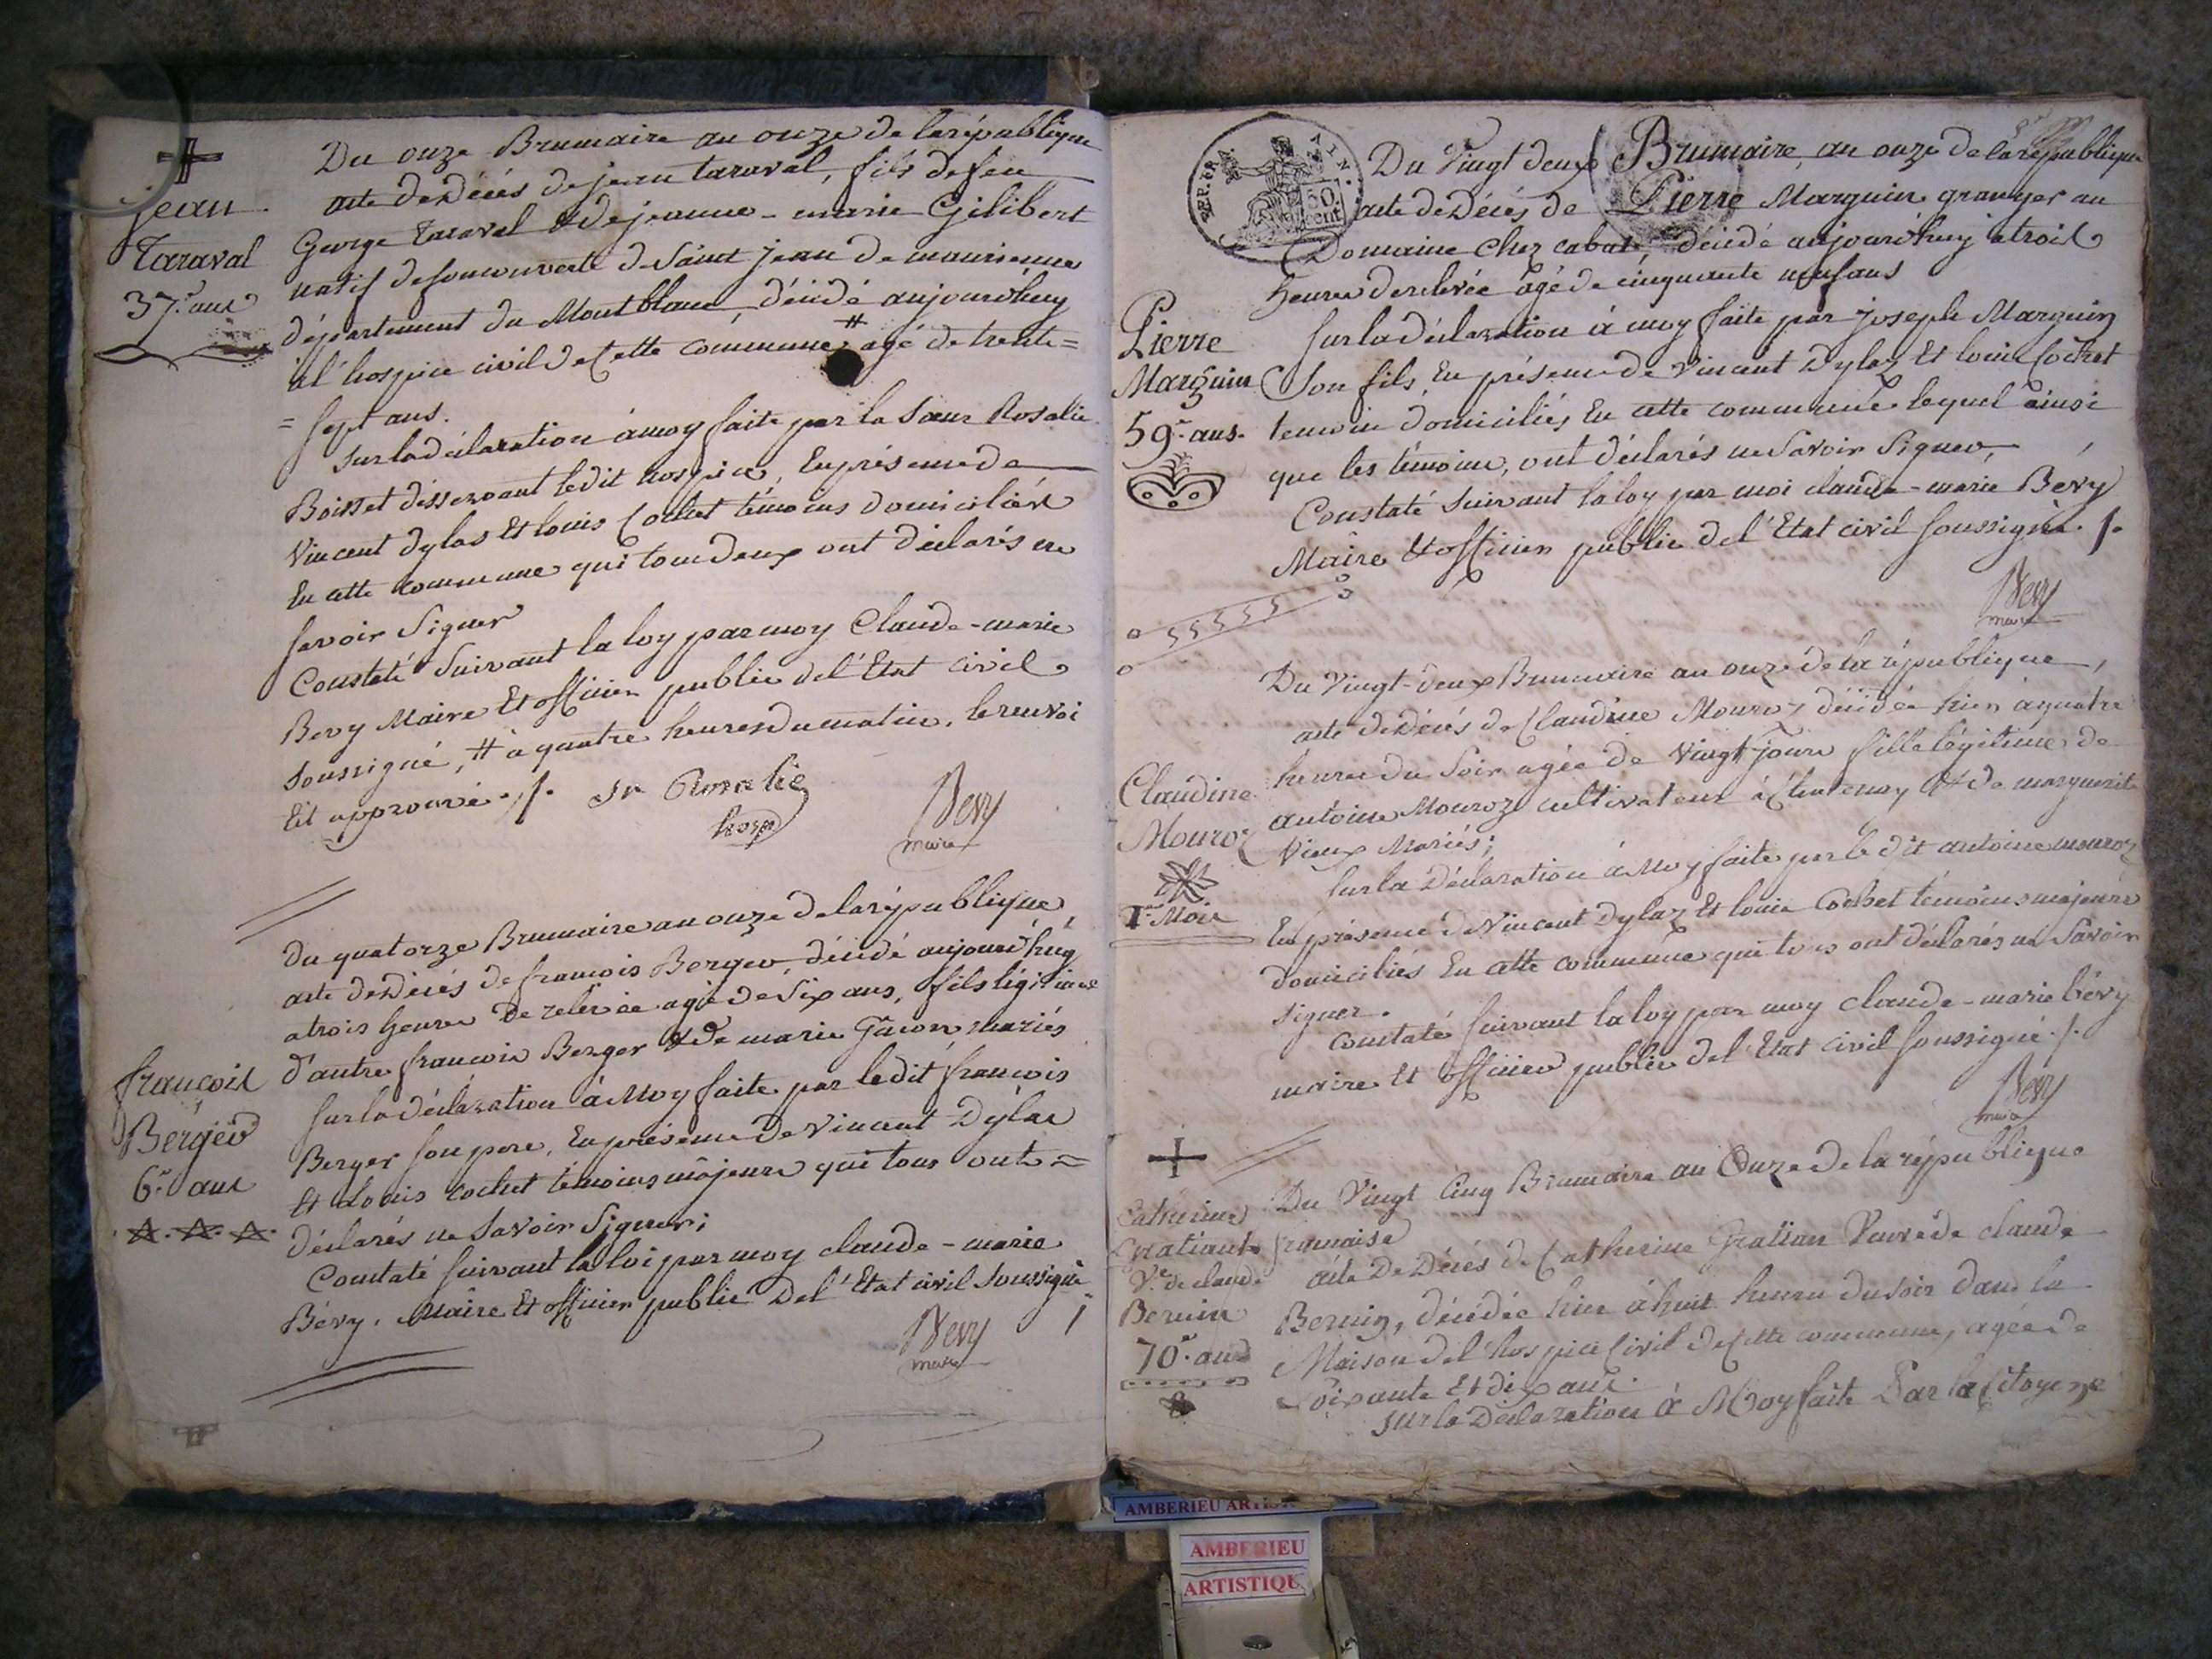 Jean
Taraval
37.ans
Du onze Brumaire an onze de la république
acte de Décés de jean taraval, fils de feu
George taraval & de jeanne-marie Gilibert
natif de Saint jean de maurienne
département du Montblanc, décédé aujourd'huy
à l'hospice civil de Cette commune, # agé de trente=
=sept ans.
Sur la déclaration à moy faite par la Sœur Rosalie
Boisset desservant le dit hospice, En présence de
Vincent dylas Et louis Cochet témoins domiciliés
En cette commune qui tous deux ont déclarés ne
savoir Signer
Constaté Suivant la loy par moy Claude-marie
Bevy Maire Et officier public de l'Etat civil
soussigné, # à quatre heures du matin, le renvoi
Est approuvé ./. Sr Rosalie
hosp
Bevy
maire
françois
Berger
6.ans
du quatorze Brumaire an onze de la république
acte de Décés de francois Berger, décédé aujourd'huy
a trois heures de relevée agé de Six ans, fils légitime
d'autre francois Berger & de marie Gacon, mariés
Sur la déclaration à Moy faite par le dit francois
Berger son pere, En présence de Vincent Dylas
Et Louis cochet témoins majeurs qui tous ont=
déclarés ne Savoir Signer;
Constaté suivant la loi par moy claude-marie
Bévy, Maire Et officier public De l'Etat civil Soussigné
Bevy
maire
REP.FRA. AIN.
50
cent
Du Vingt deux Brumaire, an onze de la république
acte de Décés de Pierre Marguin granger au
Domaine Chez cabat, décédé aujourd'huy a trois
heures de relevée agé de cinquante neuf ans
Pierre
Marguin
59.ans.
Sur la déclaration à moy faite par joseph Marguin
Son fils, En présence de Vincent Dylaz Et louis Cochet
temoins domiciliés En cette commune lequel ainsi
que les témoins, ont déclarés ne Savoir Signer,
Constaté Suivant la loy par moi claude-marie Bévy
Maire & officier public de l'Etat civil soussigné ./.
Bevy
maire
Du Vingt-deux Brumaire an onze de la république,
acte de Décés de Claudine Mouroz décédée hier à quatre
heures du Soir agée de Vingt jours fille légitime de
antoine Mouroz cultivateur à Chatenay & de marguerite
Vieux Mariés;
Claudine
Mouroz
1.er Mois
Sur la Déclaration à Moy faite par le dit antoine mouroz
En présence de Vincent Dylaz Et louis Cochet témoins majeurs
domiciliés En cette commune qui tous ont déclarés ne Savoir
signer.
Constaté suivant la loy par moy claude-marie bévy
maire Et officier public de l'Etat civil soussigné ./.
Bevy
maire
Catherine
Gratiant
Ve. de claude
Bernin
70.ans
Du Vingt Cinq Brumaire an Onze de la république
francaise
acte De Décés de Catherine Gratian Veuve de claude
Bernin, décédée hier à huit heures du soir dans la
Maison de l'hospice Civil de Cette commune, agée de
Soixante Et dix ans.
Sur la Déclaration à Moy faite Par la Citoyene
AMBERIEU
AMBERIEU
ARTISTIQU